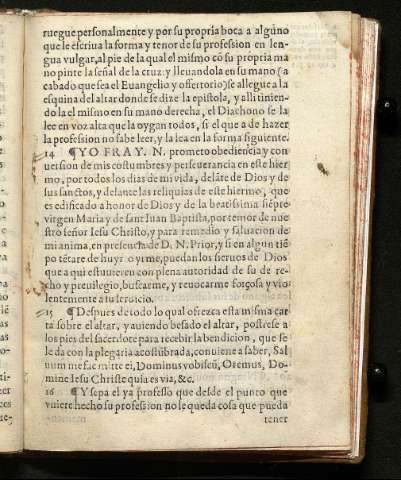 ruegue personalmente y por su propria boca a alguno
que le escriua la forma y tenor de su profession en len
gua vulgar, al pie de la qual el mismo cõ su propria ma
no pinte la señal de la cruz: y lleuandola en su mano (a
cabado que sea el Euangelio y offertorio) se allegue a la
esquina del altar donde se dize la epistola, y alli tinien-
do la el mismo en su mano derecha, el Diachono se la
lee en voz alta que la oygan todos, si el que a de hazer
la profession no sabe leer, y la lea en la forma siguiente.
14 ¶ YO FRAY. N. prometo obediencia y con
uersion de mis costumbres y perseuerancia en este hier
mo, por todos los dias de mi vida, delãte de Dios y de
sus sanctos, y delante las reliquias de este hiermo, que
es edificado a honor de Dios y de la beatissima siẽpre
virgen Maria y de sant Iuan Baptista, por temor de nue
stro señor Iesu Christo, y para remedio y saluacion de
mi anima, en presencia de D. N. Prior, y si en algun tiẽ
po tẽtare de huyr o yrme, puedan los sieruos de Dios
que a qui estuuieren con plena autoridad de su de re-
cho y preuilegio, buscarme, y reuocarme forçosa y vio
lentemente a su seruicio.
15 ¶ Despues de todo lo qual ofrezca esta misma car
ta sobre el altar, y auiendo besado el altar, postrese a
los pies del sacerdote para recibir la bendicion, que se
le da con la plegaria acostũbrada, conuiene a saber, Sal
uum me fac mitte ei, Dominus vobiscũ, Oremus, Do-
mine Iesu Christe quia es via, &c.
16 ¶ Y sepa el ya professo que desde el punto que
vuiere hecho su profession no le queda cosa que pueda
tener